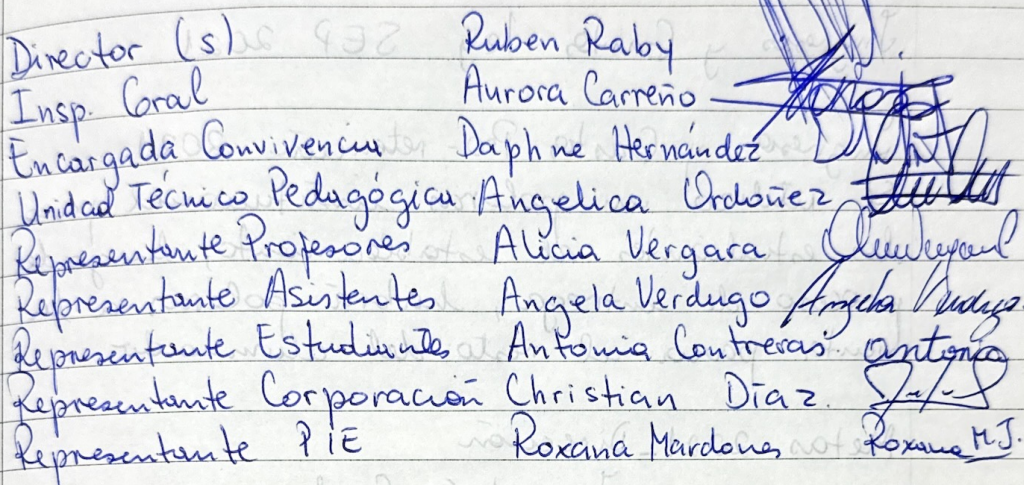 Director (s) Ruben Raby
Insp. Gral Aurora Carreño
Encargada Convivencia Daphne Hernández
Unidad Técnico Pedagógica Angelica Ordoñez
Representante Profesores Alicia Vergara
Representante Asistentes Angela Verdugo Angela Verdugo
Representante Estudiantes Antonia Contreras. antonia
Representante Corporación Christian Díaz.
Representante PIE Roxana Mardones Roxana M.J.